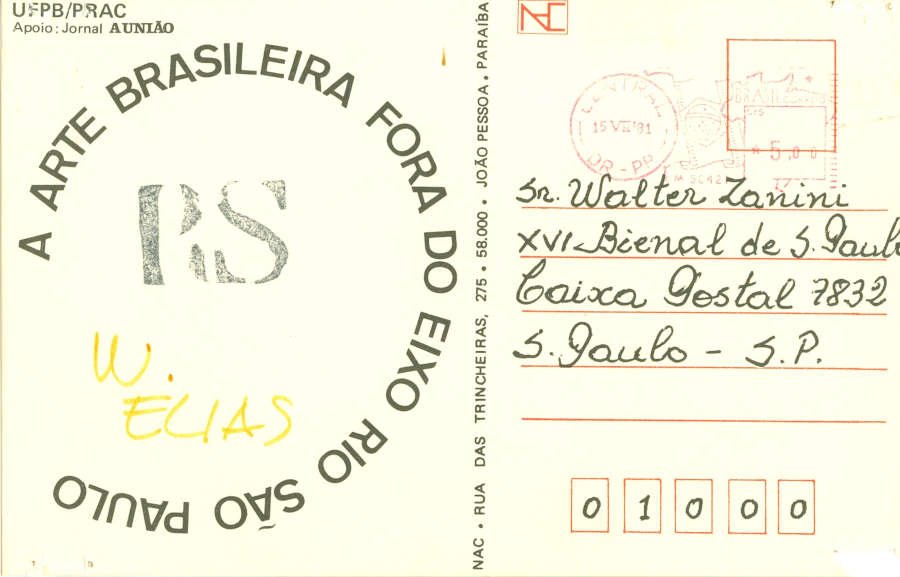 UFPB/PRAC
Apoio: Jornal A UNIÃO
A ARTE BRASILEIRA FORA DO EIXO RIO SÃO PAULO
RS
W.
ELIAS
NAC • RUA DAS TRINCHEIRAS, 275 • 58.000 • JOÃO PESSOA • PARAÍBA
CENTRAL
15 VII '81
DR-PP
BRASIL CORREIOS
5,00
Sr. Walter Zanini
XVI-Bienal de S. Paulo
Caixa Postal 7832
S. Paulo - S.P.
0 1 0 0 0